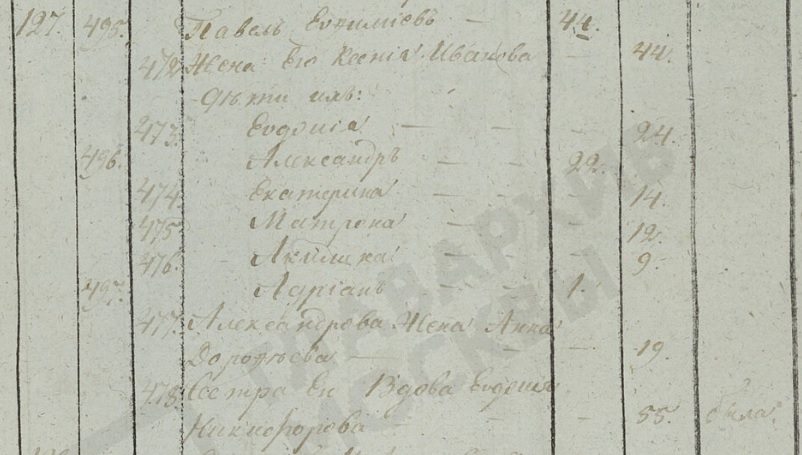 127. 495. Павелъ Евѳиміевъ — 44.
472 Жена Его Ксенія Иванова — 44.
Дѣти ихъ:
473. Евдокія — — — 24.
496. Александръ — — 22.
474. Екатерина — — — 14.
475. Матрона — — — 12.
476. Акилина — — — 9.
497. Адріанъ — — 1.
477. Александрова Жена Анна
Дороѳеева — — — 19.
478. Сестра Ея Вдова Евдокія
Никифорова — 55. была
ГЛАВАРХИВ
МОСКВЫ